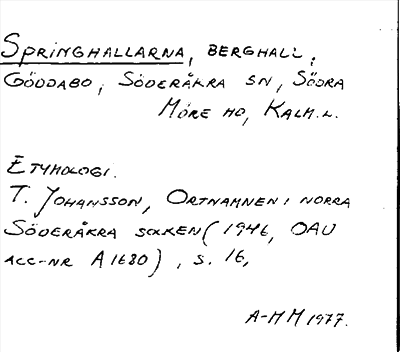 SPRINGHALLARNA, BERGHALL,
GÖDDABO, SÖDERÅKRA SN, SÖDRA
MÖRE HD, KALM.L.
ETYMOLOGI.
T. JOHANSSON, ORTNAMNEN I NORRA
SÖDERÅKRA SOCKEN (1946, OAU
ACC-NR A1680), S. 16,
A-MM 1977.